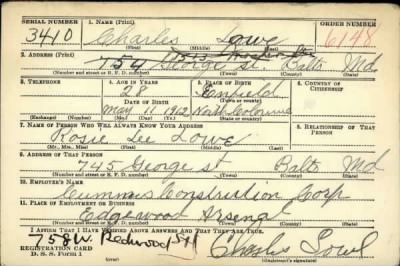 SERIAL NUMBER 1. NAME (Print) ORDER NUMBER
3410 Charles Lowe 6148
(First) (Middle) (Last)
2. ADDRESS (Print)
754 George St. Balto Md.
(Number and street or R. F. D. number) (Town) (County) (State)
3. TELEPHONE 4. AGE IN YEARS 5. PLACE OF BIRTH 6. COUNTRY OF CITIZENSHIP
28 Enfield
DATE OF BIRTH (Town or county)
May 10 1912 North Carolina
(Exchange) (Number) (Mo.) (Day) (Yr.) (State or country)
7. NAME OF PERSON WHO WILL ALWAYS KNOW YOUR ADDRESS 8. RELATIONSHIP OF THAT PERSON
Rosie Lee Lowe
(Mr., Mrs., Miss) (First) (Middle) (Last)
9. ADDRESS OF THAT PERSON
745 George St Balto Md
(Number and street or R. F. D. number) (Town) (County) (State)
10. EMPLOYER'S NAME
Cummins Construction Corp
11. PLACE OF EMPLOYMENT OR BUSINESS
Edgewood Arsenal
(Number and street or R. F. D. number) (Town) (County) (State)
I AFFIRM THAT I HAVE VERIFIED ABOVE ANSWERS AND THAT THEY ARE TRUE.
758 W. Redwood St
REGISTRATION CARD
D. S. S. Form 1 Charles Lowe
(Registrant's signature)